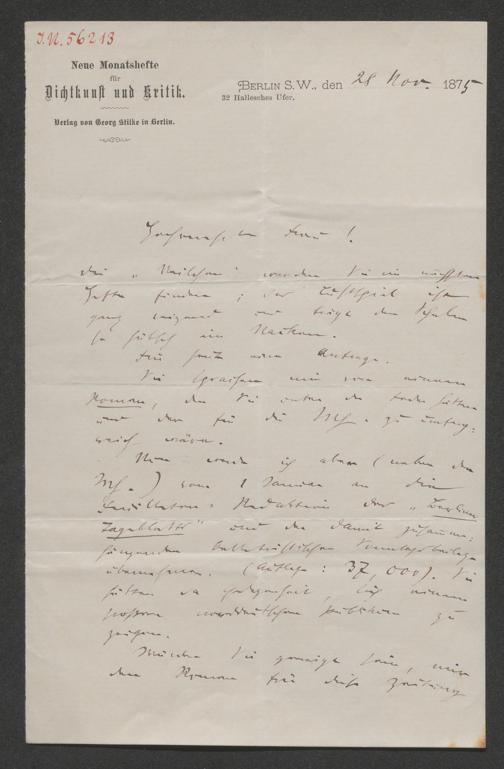 J.N. 56213
Neue Monatshefte
für
Dichtkunst und Kritik.
Verlag von Georg Stilke in Berlin.
BERLIN S.W., den 28 Nov. 1875
32 Hallesches Ufer.
Hochverehrte Frau!
Die „Veilchen" werden Sie im nächsten
Hefte finden; das Lustspiel ist
ganz reizend und trägt den
so hübsch im Nacken.
Für heute eine Anfrage.
Sie sprachen mir von einem
Roman, den Sie unter der Feder hätten
und der für die Mh. zu umfang-
reich wäre.
Nun werde ich aber (neben den
Mh.) vom 1 Januar an die
Feuilleton-Redaktion des „Berliner
Tageblatts" und der damit zusammen-
hängenden belletristischen Sonntagsbeilage
übernehmen. (Auflage: 37,000). Sie
hätten da Gelegenheit, sich einem
großen norddeutschen Publikum zu
zeigen.
Würden Sie geneigt sein, mir
den Roman für diese Zeitung